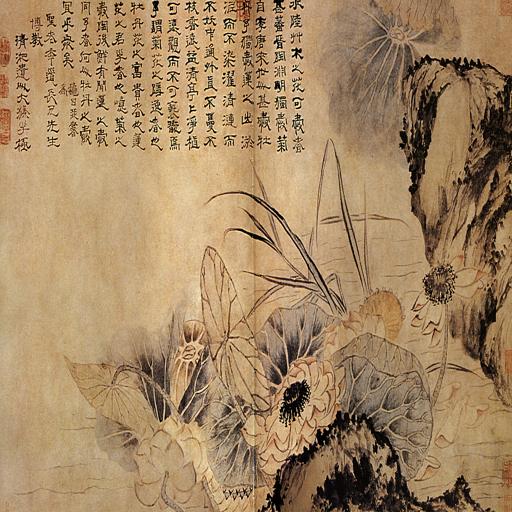 水陸艸木之花可愛者
甚蕃晉陶淵明獨愛菊
自李唐來世人甚愛牡
丹予獨愛蓮之出淤
泥而不染濯清漣而
不妖中通外直不蔓不
枝香遠益清亭亭淨植
可遠觀而不可褻翫焉
予謂菊花之隱逸者也
牡丹花之富貴者也蓮
花之君子者也噫菊之
愛陶後鮮有聞蓮之愛
同予者何人牡丹之愛
宜乎衆矣
為
聖老年翁長兄先生
博教
清湘遺人大滌子極